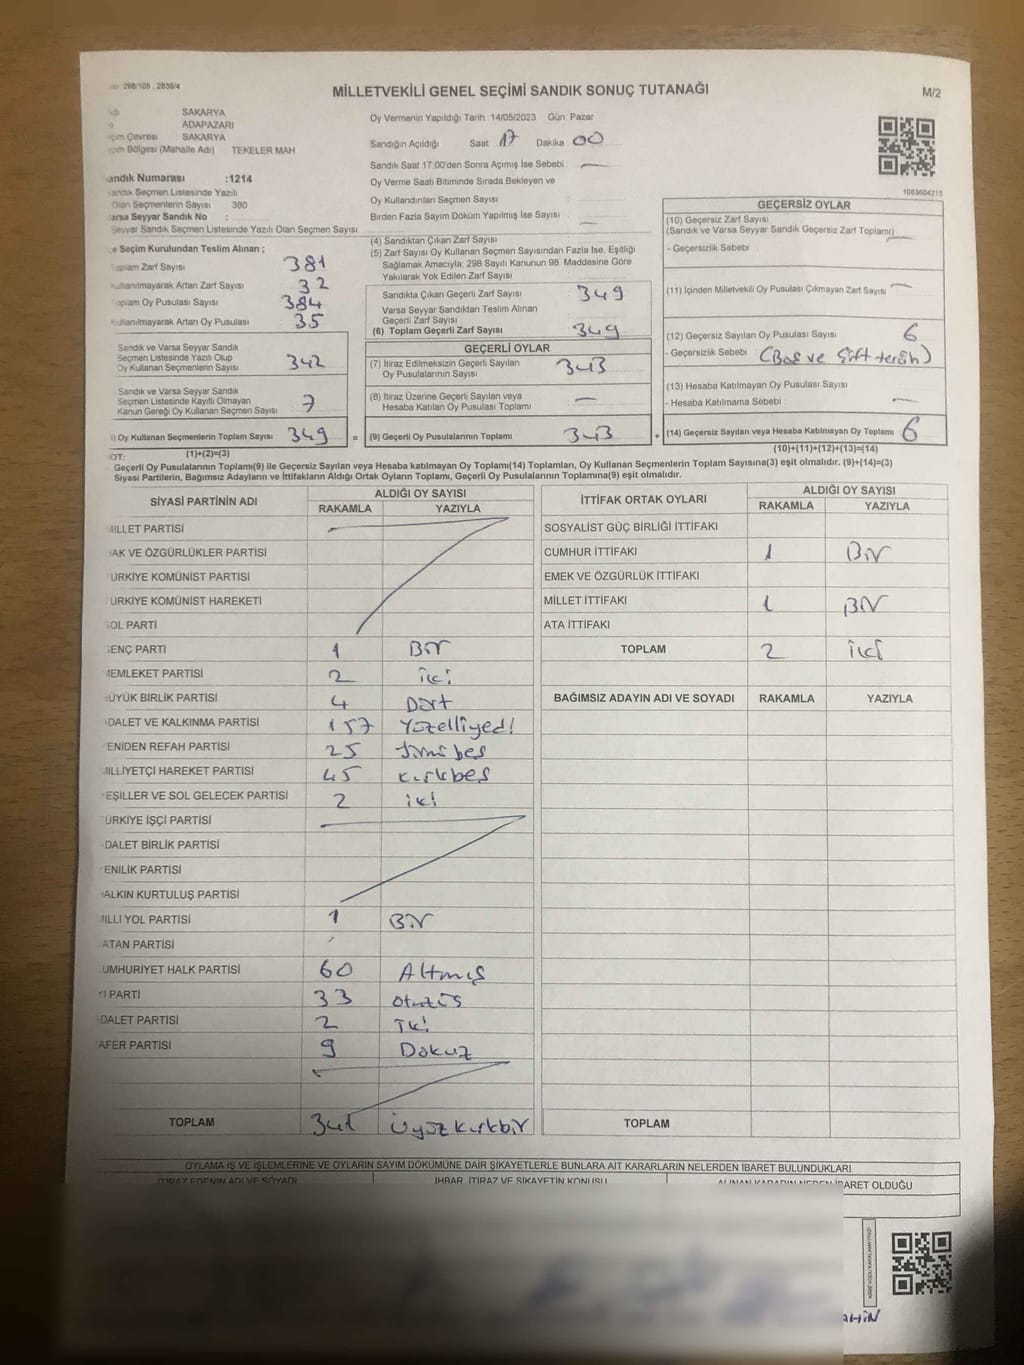 298/105 , 2836/4
MİLLETVEKİLİ GENEL SEÇİMİ SANDIK SONUÇ TUTANAĞI
M/2
SAKARYA
ADAPAZARI
çim Çevresi SAKARYA
Bölgesi (Mahalle Adı) TEKELER MAH
andık Numarası :1214
andık Seçmen Listesinde Yazılı
Olan Seçmenlerin Sayısı 380
arsa Seyyar Sandık No :
Seyyar Sandık Seçmen Listesinde Yazılı Olan Seçmen Sayısı
Oy Vermenin Yapıldığı Tarih 14/05/2023 Gün Pazar
Sandığın Açıldığı Saat 17 Dakika 00
Sandık Saat 17:00'den Sonra Açımış İse Sebebi —
Oy Verme Saati Bitiminde Sırada Bekleyen ve
Oy Kullandırılan Seçmen Sayısı
Birden Fazla Sayım Döküm Yapılmış İse Sayısı —
1083604215
e Seçim Kurulundan Teslim Alınan ;
oplam Zarf Sayısı 381
ullanılmayarak Artan Zarf Sayısı 32
oplam Oy Pusulası Sayısı 384
Kullanılmayarak Artan Oy Pusulası 35
Sandık ve Varsa Seyyar Sandık
Seçmen Listesinde Yazılı Olup
Oy Kullanan Seçmenlerin Sayısı 342
Sandık ve Varsa Seyyar Sandık
Seçmen Listesinde Kayıtlı Olmayan
Kanun Gereği Oy Kullanan Seçmen Sayısı 7
) Oy Kullanan Seçmenlerin Toplam Sayısı 349 =
(1)+(2)=(3)
(4) Sandıktan Çıkan Zarf Sayısı
(5) Zarf Sayısı Oy Kullanan Seçmen Sayısından Fazla İse, Eşitliği
Sağlamak Amacıyla, 298 Sayılı Kanunun 98. Maddesine Göre
Yakılarak Yok Edilen Zarf Sayısı
Sandıkta Çıkan Geçerli Zarf Sayısı 349
Varsa Seyyar Sandıktan Teslim Alınan
Geçerli Zarf Sayısı
(6) Toplam Geçerli Zarf Sayısı 349
GEÇERLİ OYLAR
(7) İtiraz Edilmeksizin Geçerli Sayılan
Oy Pusulalarının Sayısı 343
(8) İtiraz Üzerine Geçerli Sayılan veya
Hesaba Katılan Oy Pusulası Toplamı —
(9) Geçerli Oy Pusulalarının Toplamı 343 +
GEÇERSİZ OYLAR
(10) Geçersiz Zarf Sayısı
(Sandık ve Varsa Seyyar Sandık Geçersiz Zarf Toplamı) —
- Geçersizlik Sebebi
(11) İçinden Milletvekili Oy Pusulası Çıkmayan Zarf Sayısı —
(12) Geçersiz Sayılan Oy Pusulası Sayısı 6
- Geçersizlik Sebebi (Boş ve Çift tercih)
(13) Hesaba Katılmayan Oy Pusulası Sayısı
- Hesaba Katılmama Sebebi —
(14) Geçersiz Sayılan veya Hesaba Katılmayan Oy Toplamı 6
(10)+(11)+(12)+(13)=(14)
OT:
Geçerli Oy Pusulalarının Toplamı(9) ile Geçersiz Sayılan veya Hesaba katılmayan Oy Toplamı(14) Toplamları, Oy Kullanan Seçmenlerin Toplam Sayısına(3) eşit olmalıdır. (9)+(14)=(3)
Siyasi Partilerin, Bağımsız Adayların ve İttifakların Aldığı Ortak Oyların Toplamı, Geçerli Oy Pusulalarının Toplamına(9) eşit olmalıdır.
SİYASİ PARTİNİN ADI ALDIĞI OY SAYISI
RAKAMLA YAZIYLA
MİLLET PARTİSİ
AK VE ÖZGÜRLÜKLER PARTİSİ
ÜRKİYE KOMÜNİST PARTİSİ
ÜRKİYE KOMÜNİST HAREKETİ
OL PARTİ
ENÇ PARTİ 1 Bir
EMLEKET PARTİSİ 2 iki
ÜYÜK BİRLİK PARTİSİ 4 Dört
DALET VE KALKINMA PARTİSİ 157 Yüzelliyedi
ENİDEN REFAH PARTİSİ 25 yirmibeş
MİLLİYETÇİ HAREKET PARTİSİ 45 kırkbeş
EŞİLLER VE SOL GELECEK PARTİSİ 2 iki
ÜRKİYE İŞÇİ PARTİSİ
DALET BİRLİK PARTİSİ
ENİLİK PARTİSİ
ALKIN KURTULUŞ PARTİSİ
MİLLİ YOL PARTİSİ 1 Bir
ATAN PARTİSİ
UMHURİYET HALK PARTİSİ 60 Altmış
Yİ PARTİ 33 otuzüç
DALET PARTİSİ 2 İki
AFER PARTİSİ 9 Dokuz
TOPLAM 341 üçyüzkırkbir
İTTİFAK ORTAK OYLARI ALDIĞI OY SAYISI
RAKAMLA YAZIYLA
SOSYALİST GÜÇ BİRLİĞİ İTTİFAKI
CUMHUR İTTİFAKI 1 Bir
EMEK VE ÖZGÜRLÜK İTTİFAKI
MİLLET İTTİFAKI 1 Bir
ATA İTTİFAKI
TOPLAM 2 iki
BAĞIMSIZ ADAYIN ADI VE SOYADI RAKAMLA YAZIYLA
TOPLAM
OYLAMA İŞ VE İŞLEMLERİNE VE OYLARIN SAYIM DÖKÜMÜNE DAİR ŞİKAYETLERLE BUNLARA AİT KARARLARIN NELERDEN İBARET BULUNDUKLARI
İTİRAZ EDENİN ADI VE SOYADI İHBAR, İTİRAZ VE ŞİKAYETİN KONUSU ALINAN KARARIN NEDEN İBARET OLDUĞU
AHİN